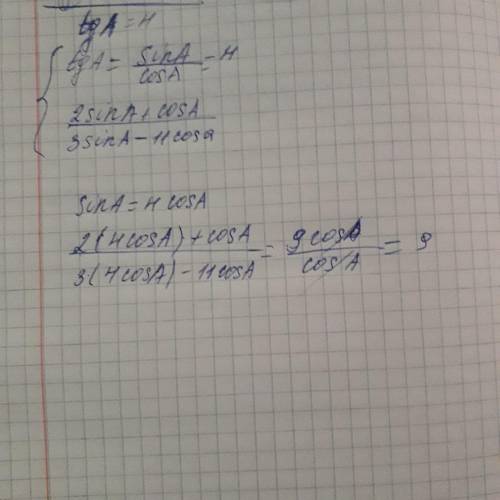 tgA = 4
tgA = sinA/cosA = 4
(2sinA + cosA)/(3sinA - 11cosa)
sinA = 4cosA
(2(4cosA) + cosA)/(3(4cosA) - 11cosA) = 9cosA/cosA = 9